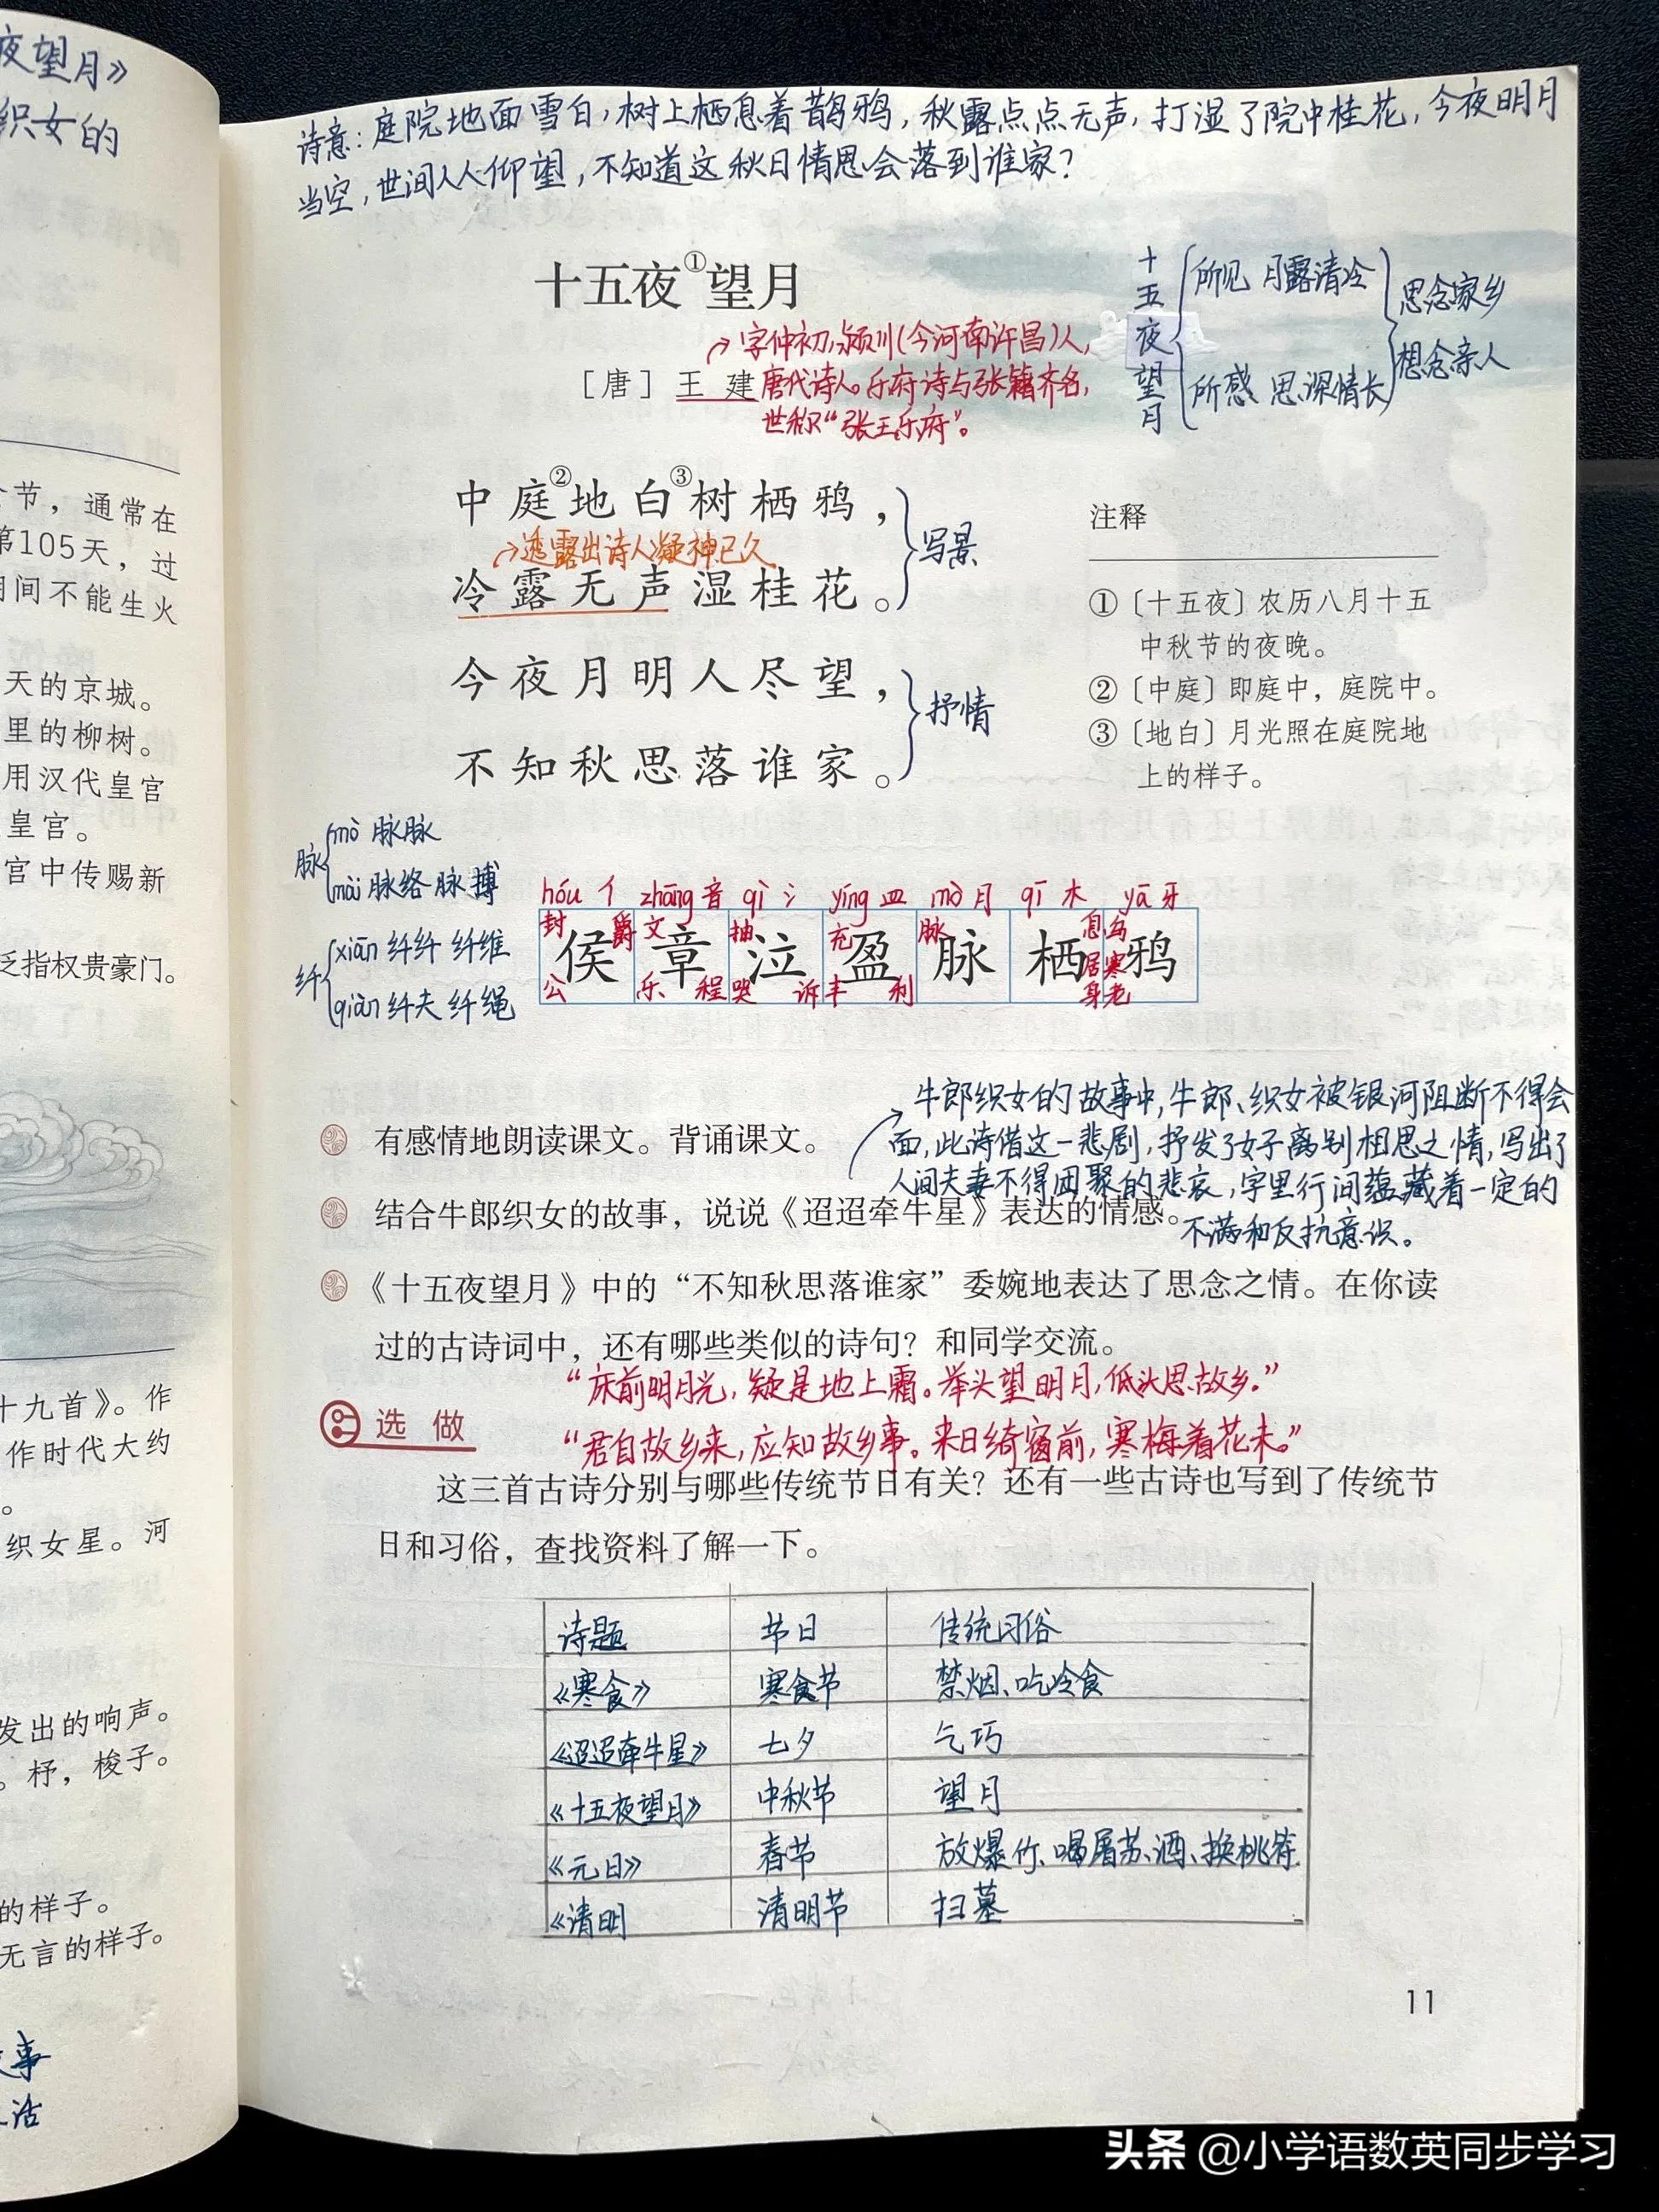 夜望月》
织女的
节，通常在
第105天，过
期间不能生火
天的京城。
里的柳树。
用汉代皇宫
皇宫。
宫中传赐新
泛指权贵豪门。
十九首》。作
作时代大约
。
织女星。河
发出的响声。
。杼，梭子。
的样子。
无言的样子。
事
活
诗意：庭院地面雪白，树上栖息着鹊鸦，秋露点点无声，打湿了院中桂花，今夜明月
当空，世间人人仰望，不知道这秋日情思会落到谁家？
十五夜①望月
字仲初，颍川（今河南许昌）人，
[唐] 王 建 唐代诗人。乐府诗与张籍齐名，
世称“张王乐府”。
十五夜望月
所见 月露清冷
所感 思深情长
思念家乡
想念亲人
中庭②地白③树栖鸦，
透露出诗人凝神已久
冷露无声湿桂花。
写景
今夜月明人尽望，
不知秋思落谁家。
抒情
注释
①〔十五夜〕农历八月十五
中秋节的夜晚。
②〔中庭〕即庭中，庭院中。
③〔地白〕月光照在庭院地
上的样子。
脉 mò 脉脉
mài 脉络 脉搏
纤 xiān 纤纤 纤维
qiàn 纤夫 纤绳
hóu 亻 zhāng 音 qì 氵 yíng 皿 mò 月 qī 木 yā 牙
封 爵 文 抽 充 脉 息 乌
侯 章 泣 盈 脉 栖 鸦
居 寒
公 乐 程 哭 诉 丰 利 身 老
有感情地朗读课文。背诵课文。
牛郎织女的故事中，牛郎、织女被银河阻断不得会
面，此诗借这一悲剧，抒发了女子离别相思之情，写出了
人间夫妻不得团聚的悲哀，字里行间蕴藏着一定的
不满和反抗意识。
结合牛郎织女的故事，说说《迢迢牵牛星》表达的情感。
《十五夜望月》中的“不知秋思落谁家”委婉地表达了思念之情。在你读
过的古诗词中，还有哪些类似的诗句？和同学交流。
“床前明月光，疑是地上霜。举头望明月，低头思故乡。”
选 做
“君自故乡来，应知故乡事。来日绮窗前，寒梅着花未。”
这三首古诗分别与哪些传统节日有关？还有一些古诗也写到了传统节
日和习俗，查找资料了解一下。
诗题 节日 传统习俗
《寒食》 寒食节 禁烟、吃冷食
《迢迢牵牛星》 七夕 乞巧
《十五夜望月》 中秋节 望月
《元日》 春节 放爆竹、喝屠苏酒、换桃符
《清明 清明节 扫墓
11
头条 @小学语数英同步学习